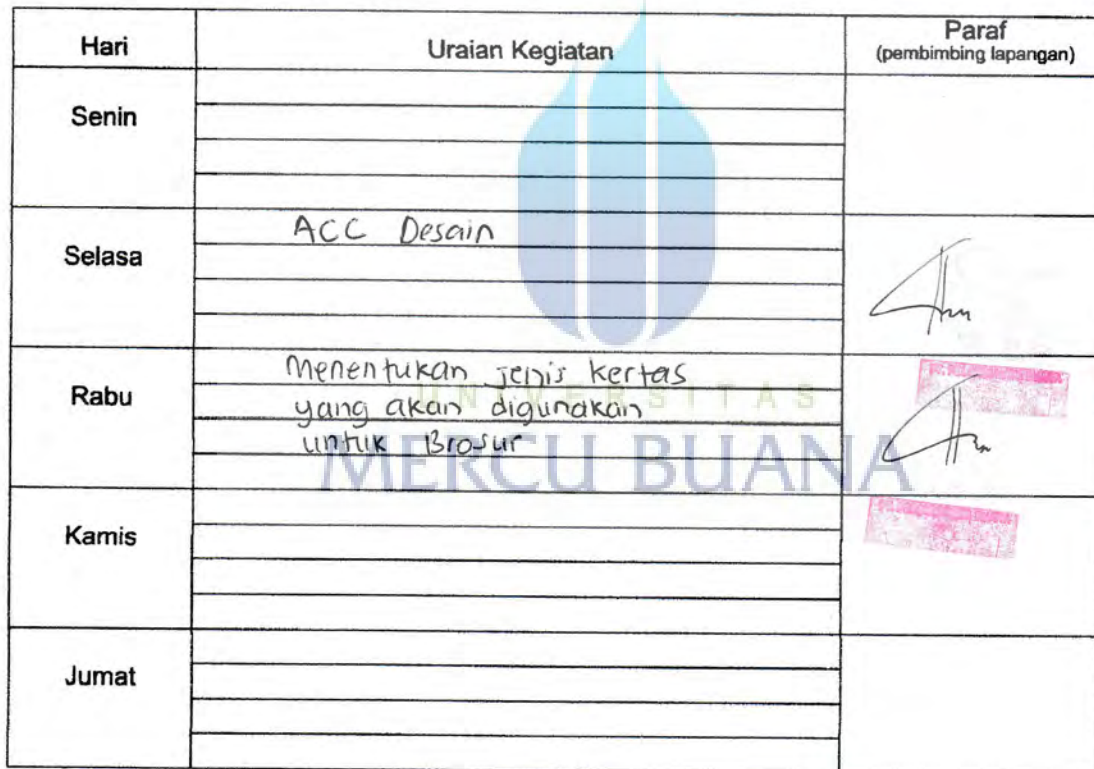 Hari Uraian Kegiatan Paraf
(pembimbing lapangan)
Senin
Selasa ACC Desain
Rabu Menentukan jenis kertas
yang akan digunakan
untuk Brosur
UNIVERSITAS
MERCU BUANA
Kamis
Jumat